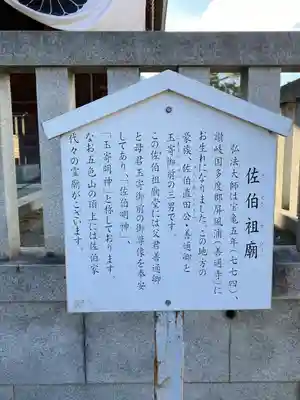 佐伯祖廟
弘法大師は宝亀五年(七七四)、
讃岐国多度郡屏風浦(善通寺)に
お生れになりました。この地方の
豪族、佐伯直田公・善通卿と
玉寄御前の三男です。
この佐伯祖廟堂には父君善通卿
と母君玉寄御前の御尊像を奉安
してあり、「佐伯明神」、
「玉寄明神」と称しております。
なお五色山の頂上には佐伯家
代々の霊廟がございます。